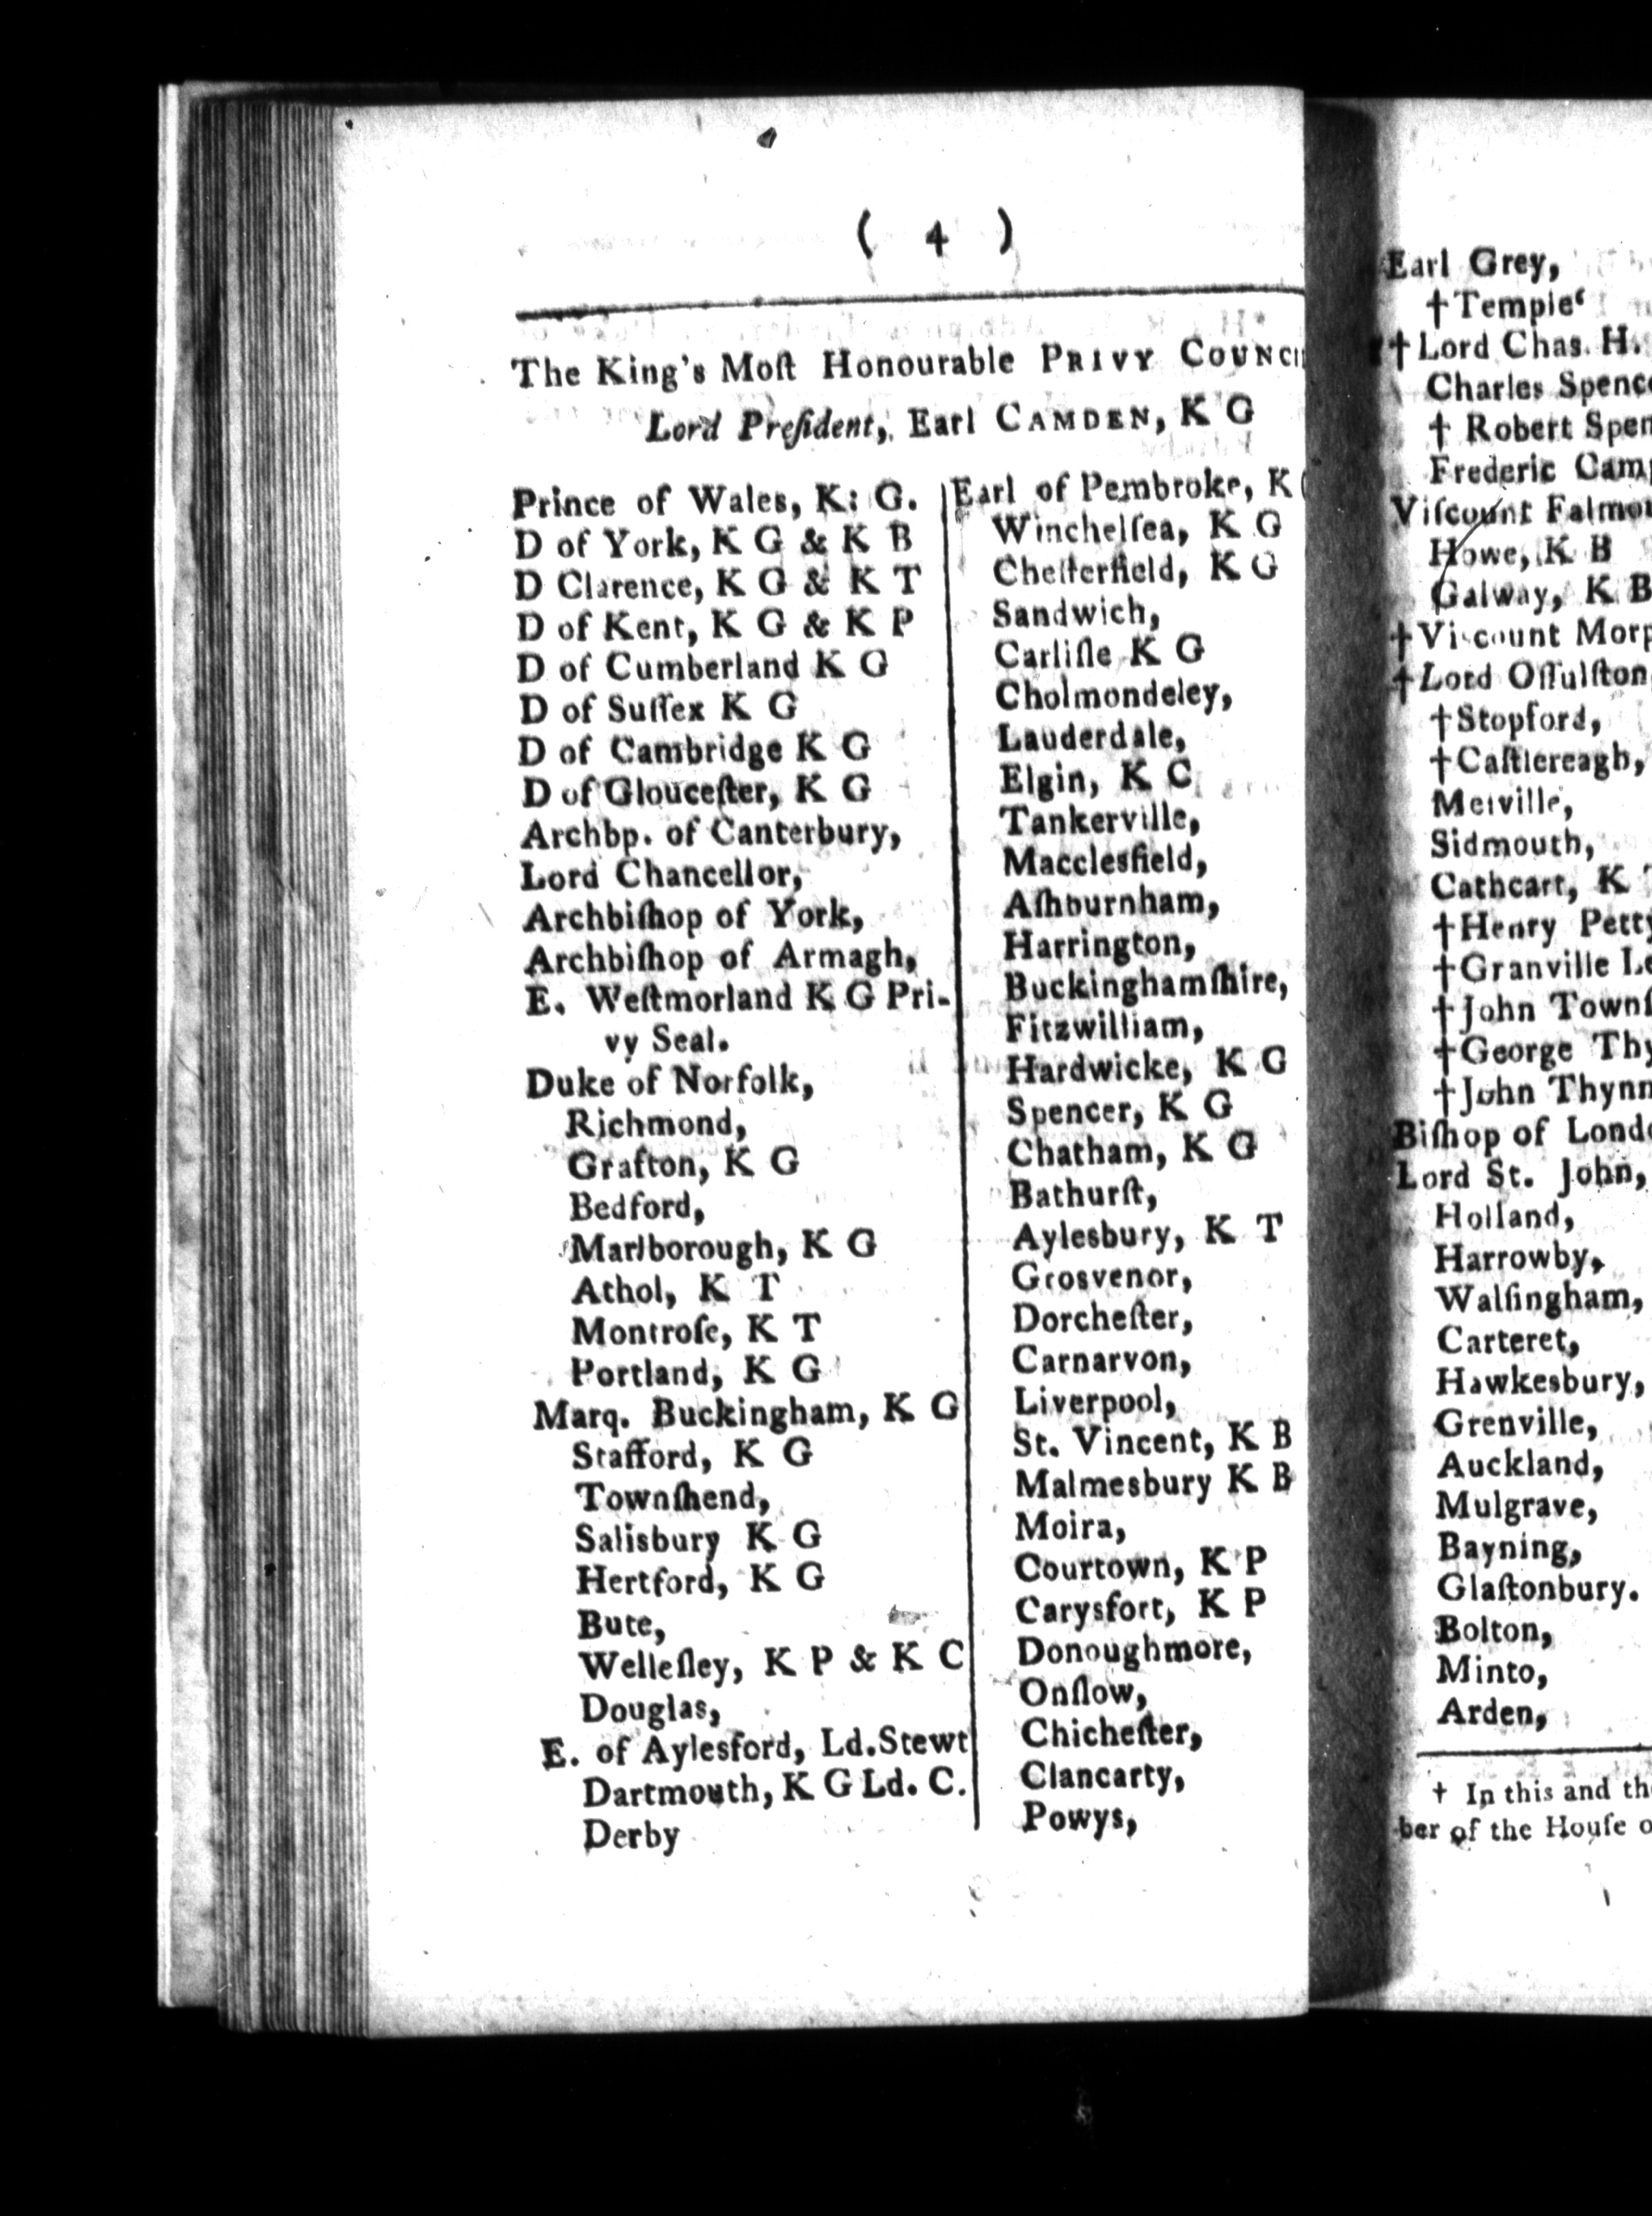 ( 4 )
The King's Moſt Honourable PRIVY COUNCI
Lord Preſident, Earl CAMDEN, K G
Prince of Wales, K: G.
D of York, K G & K B
D Clarence, K G & K T
D of Kent, K G & K P
D of Cumberland K G
D of Suſſex K G
D of Cambridge K G
D of Glouceſter, K G
Archbp. of Canterbury,
Lord Chancellor,
Archbiſhop of York,
Archbiſhop of Armagh,
E. Weſtmorland K G Pri-
vy Seal.
Duke of Norfolk,
Richmond,
Grafton, K G
Bedford,
Marlborough, K G
Athol, K T
Montroſe, K T
Portland, K G
Marq. Buckingham, K G
Stafford, K G
Townſhend,
Salisbury K G
Hertford, K G
Bute,
Welleſley, K P & K C
Douglas,
E. of Aylesford, Ld. Stewt
Dartmouth, K G Ld. C.
Derby
Earl of Pembroke, K
Winchelſea, K G
Cheſterfield, K G
Sandwich,
Carliſle K G
Cholmondeley,
Lauderdale,
Elgin, K C
Tankerville,
Macclesfield,
Aſhburnham,
Harrington,
Buckinghamſhire,
Fitzwilliam,
Hardwicke, K G
Spencer, K G
Chatham, K G
Bathurſt,
Aylesbury, K T
Grosvenor,
Dorcheſter,
Carnarvon,
Liverpool,
St. Vincent, K B
Malmesbury K B
Moira,
Courtown, K P
Carysfort, K P
Donoughmore,
Onſlow,
Chicheſter,
Clancarty,
Powys,
Earl Grey,
†Temple
†Lord Chas. H.
Charles Spenc
† Robert Spen
Frederic Cam
Viſcount Falmou
Howe, K B
Galway, K B
†Viscount Morp
†Lord Oſſulſton
†Stopford,
†Caſtlereagh,
Melville,
Sidmouth,
Cathcart, K
†Henry Petty
†Granville Le
†John Townſ
†George Thy
†John Thynn
Biſhop of Londo
Lord St. John,
Holland,
Harrowby,
Walſingham,
Carteret,
Hawkesbury,
Grenville,
Auckland,
Mulgrave,
Bayning,
Glaſtonbury.
Bolton,
Minto,
Arden,
† In this and th
ber of the Houſe o